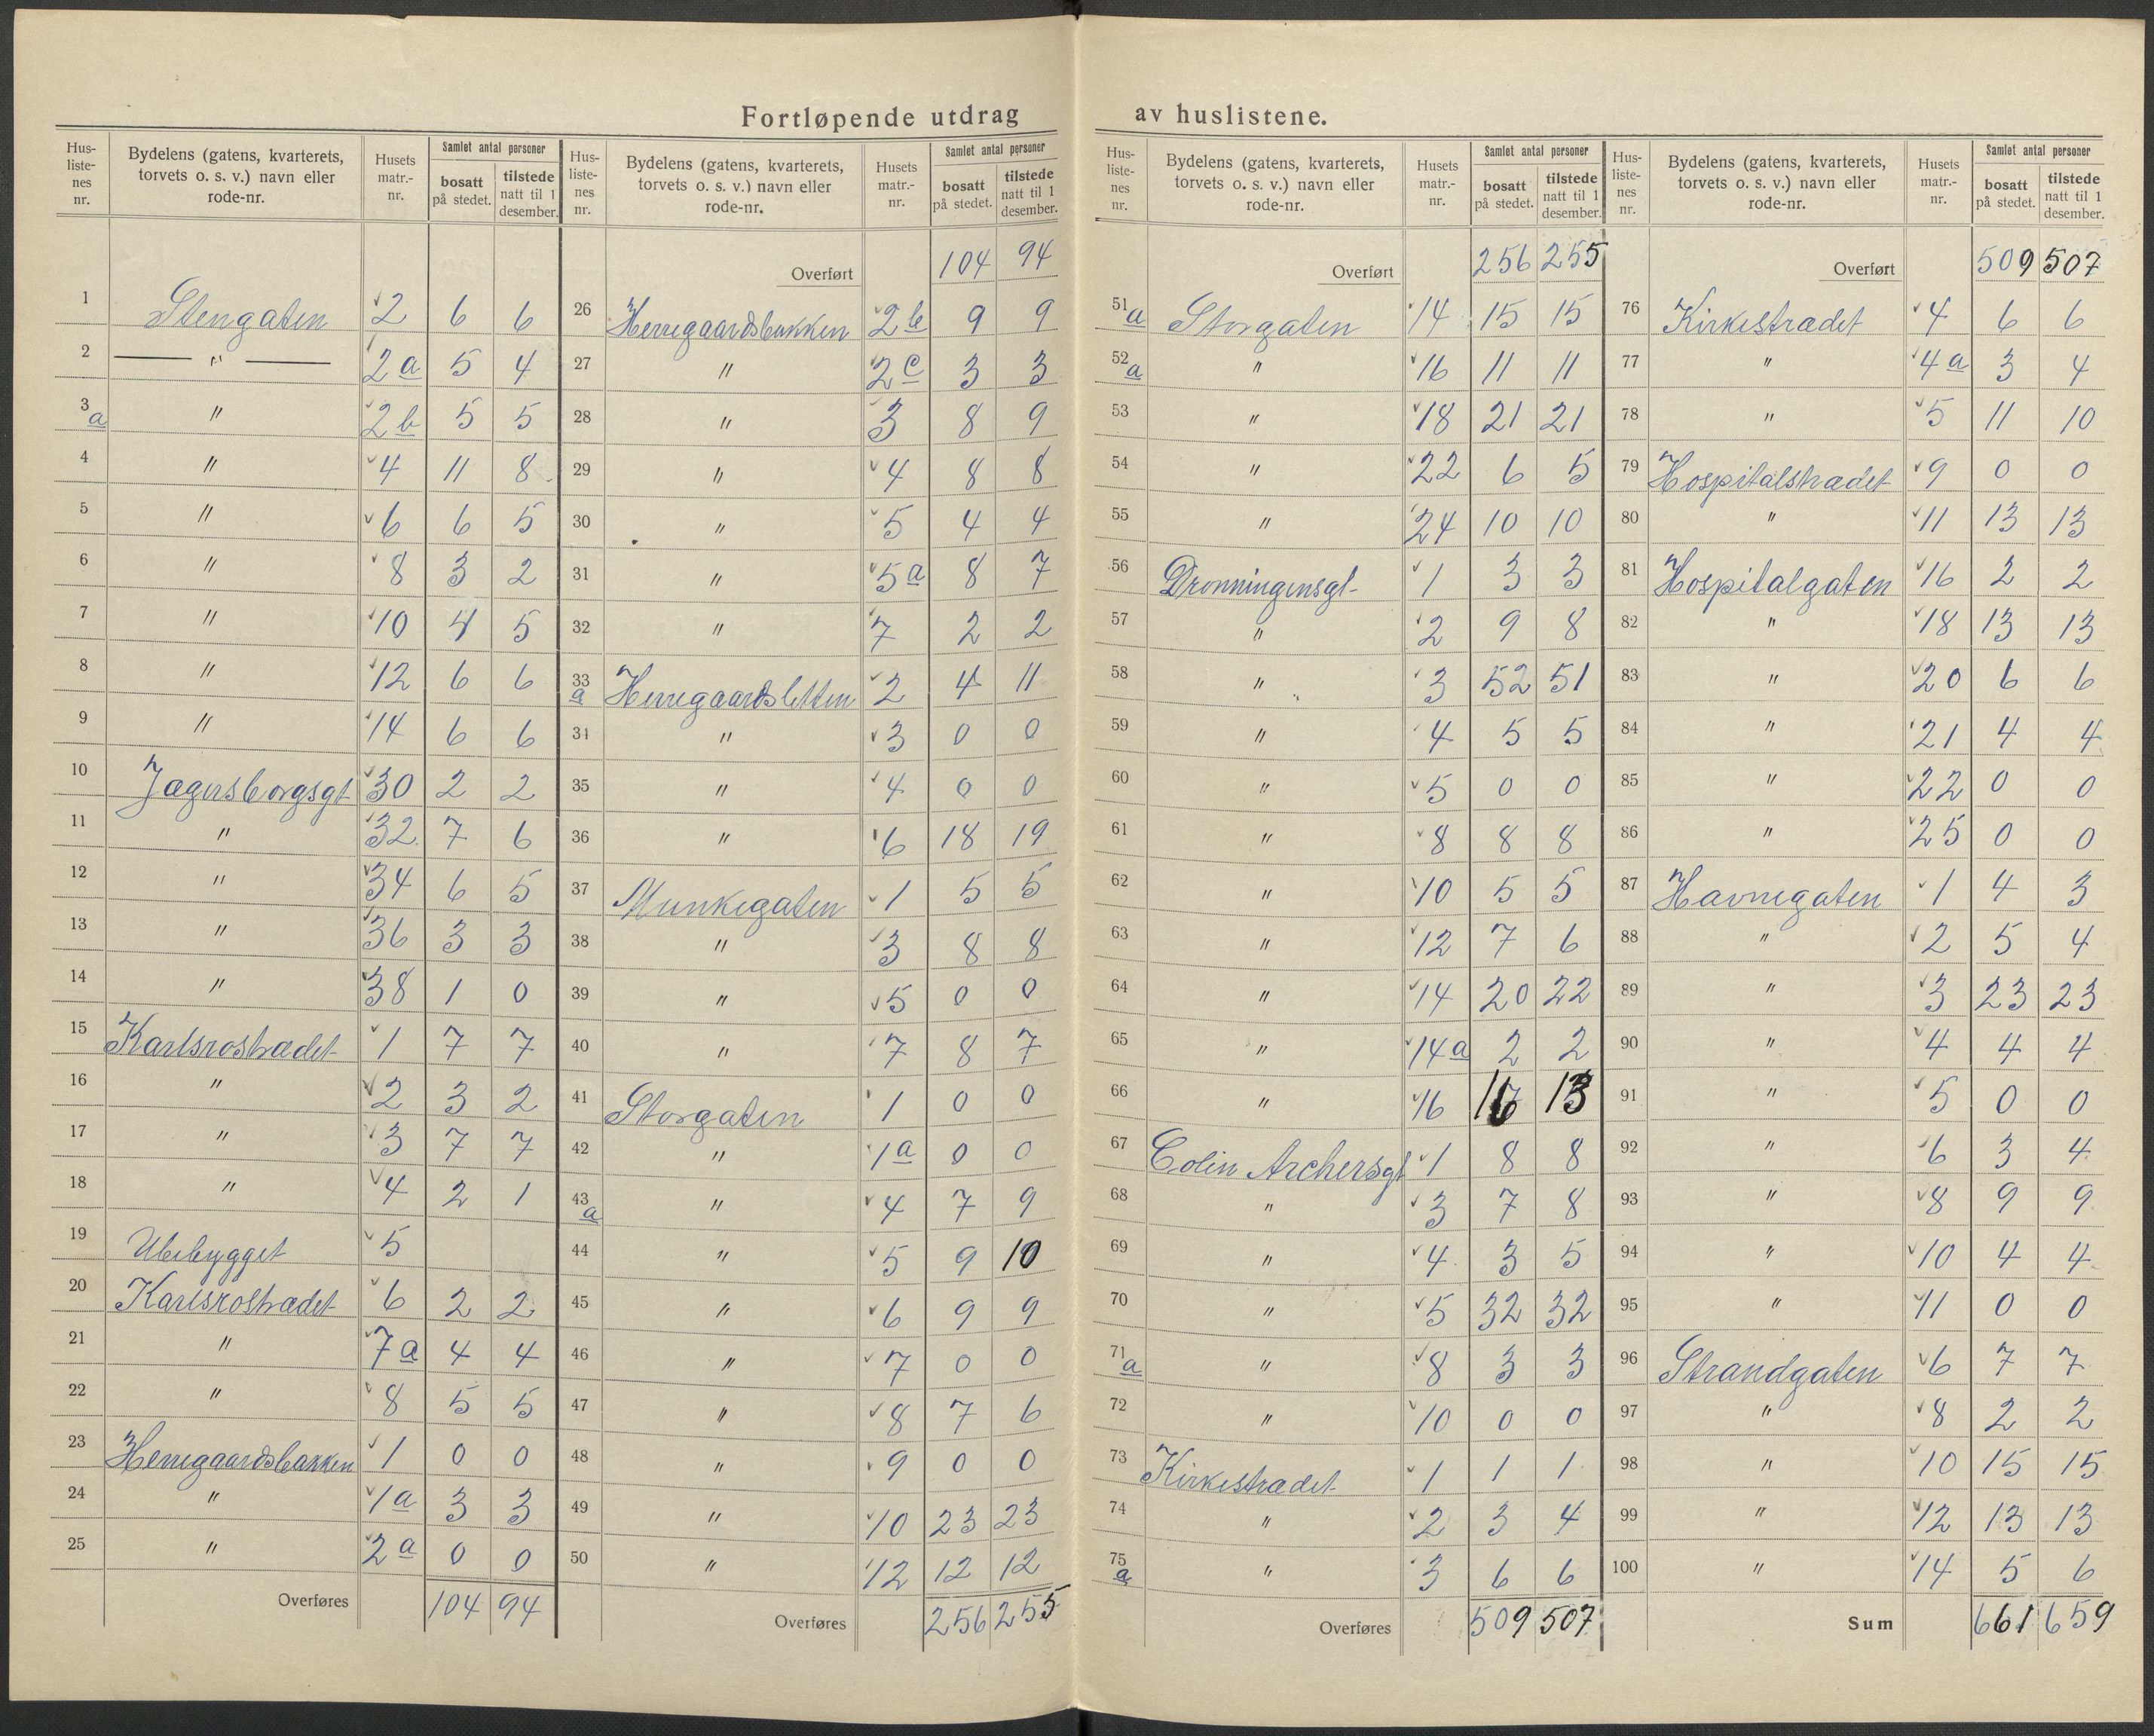 Fortløpende utdrag av huslistene.
Hus-liste-nes nr. | Bydelens (gatens, kvarterets, torvets o. s. v.) navn eller rode-nr. | Husets matr.-nr. | Samlet antal personer bosatt på stedet. | tilstede natt til 1 desember.
1 Stengaten 2 6 6
2 — " — 2a 5 4
3a " 2b 5 5
4 " 4 11 8
5 " 6 6 5
6 " 8 3 2
7 " 10 4 5
8 " 12 6 6
9 " 14 6 6
10 Jægersborgsgt 30 2 2
11 " 32 7 6
12 " 34 6 5
13 " 36 3 3
14 " 38 1 0
15 Karlsrostrædet 1 7 7
16 " 2 3 2
17 " 3 7 7
18 " 4 2 1
19 Ubebygget 5
20 Karlsrostrædet 6 2 2
21 " 7a 4 4
22 " 8 5 5
23 Herregaardsbakken 1 0 0
24 " 1a 3 3
25 " 2a 0 0
Overføres 104 94
Hus-liste-nes nr. | Bydelens (gatens, kvarterets, torvets o. s. v.) navn eller rode-nr. | Husets matr.-nr. | Samlet antal personer bosatt på stedet. | tilstede natt til 1 desember.
Overført 104 94
26 Herregaardsbakken 2b 9 9
27 " 2c 3 3
28 " 3 8 9
29 " 4 8 8
30 " 5 4 4
31 " 5a 8 7
32 " 7 2 2
33a Herregaardsletten 2 4 11
31 " 3 0 0
35 " 4 0 0
36 " 6 18 19
37 Munkegaten 1 5 5
38 " 3 8 8
39 " 5 0 0
40 " 7 8 7
41 Storgaten 1 0 0
42 " 1a 0 0
43a " 4 7 9
44 " 5 9 10
45 " 6 9 9
46 " 7 0 0
47 " 8 7 6
48 " 9 0 0
49 " 10 23 23
50 " 12 12 12
Overføres 256 255
Hus-liste-nes nr. | Bydelens (gatens, kvarterets, torvets o. s. v.) navn eller rode-nr. | Husets matr.-nr. | Samlet antal personer bosatt på stedet. | tilstede natt til 1 desember.
Overført 256 255
51a Storgaten 14 15 15
52a " 16 11 11
53 " 18 21 21
54 " 22 6 5
55 " 24 10 10
56 Dronningensgt 1 3 3
57 " 2 9 8
58 " 3 52 51
59 " 4 5 5
60 " 5 0 0
61 " 8 8 8
62 " 10 5 5
63 " 12 7 6
64 " 14 20 22
65 " 14a 2 2
66 " 16 16 13
67 Colin Archersgt 1 8 8
68 " 3 7 8
69 " 4 3 5
70 " 5 32 32
71a " 8 3 3
72 " 10 0 0
73 Kirkestrædet 1 1 1
74 " 2 3 4
75a " 3 6 6
Overføres 509 507
Hus-liste-nes nr. | Bydelens (gatens, kvarterets, torvets o. s. v.) navn eller rode-nr. | Husets matr.-nr. | Samlet antal personer bosatt på stedet. | tilstede natt til 1 desember.
Overført 509 507
76 Kirkestrædet 4 6 6
77 " 4a 3 4
78 " 5 11 10
79 Hospitalstrædet 9 0 0
80 " 11 13 13
81 Hospitalgaten 16 2 2
82 " 18 13 13
83 " 20 6 6
84 " 21 4 4
85 " 22 0 0
86 " 25 0 0
87 Havnegaten 1 4 3
88 " 2 5 4
89 " 3 23 23
90 " 4 4 4
91 " 5 0 0
92 " 6 3 4
93 " 8 9 9
94 " 10 4 4
95 " 11 0 0
96 Strandgaten 6 7 7
97 " 8 2 2
98 " 10 15 15
99 " 12 13 13
100 " 14 5 6
Sum 661 659